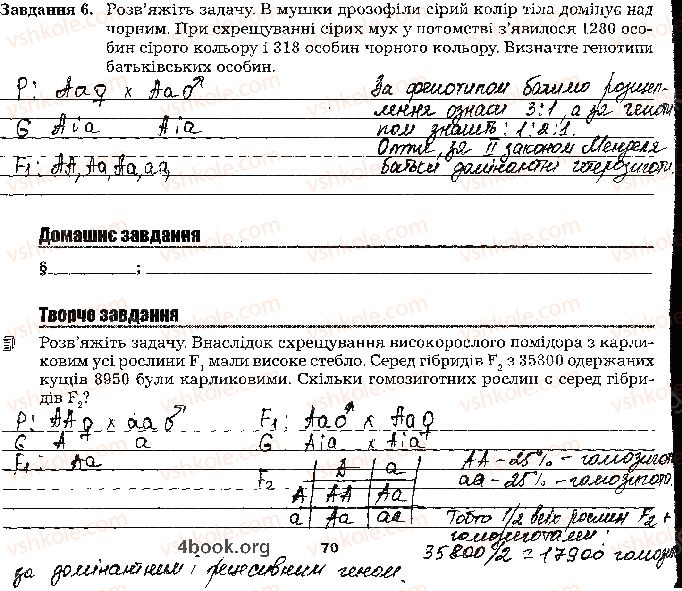 Завдання 6. Розв'яжіть задачу. В мушки дрозофіли сірий колір тіла домінує над
чорним. При схрещуванні сірих мух у потомстві з'явилося 1230 осо-
бин сірого кольору і 318 особин чорного кольору. Визначте генотипи
батьківських особин.
P: Aa♀ x Aa♂ За фенотипом бачимо розщеп-
лення ознаки 3:1, а за геноти
G A i a A i a пом значить: 1:2:1.
Отже, за II законом Менделя
F₁: AA, Aa, Aa, aa, батьки домінантні гетерозиготи.
Домашнє завдання
§ ;
Творче завдання
Розв'яжіть задачу. Внаслідок схрещування високорослого помідора з карли-
ковим усі рослини F₁ мали високе стебло. Серед гібридів F₂ з 35800 одержаних
кущів 8950 були карликовими. Скільки гомозиготних рослин є серед гібри-
дів F₂?
P: AA♀ x aa♂ F₁: Aa♂ x Aa♀
G A a G A i a x A i a
F₁: Aa A a AA - 25% - гомозигот
F₂ A AA Aa aa - 25% - гомозигот
a Aa aa Тобто 1/2 всіх рослин F₂ є
гомозиготами:
4book.org 70 35800/2 = 17900 гомоз
за домінантним і рецесивним геном.
vshkole.com